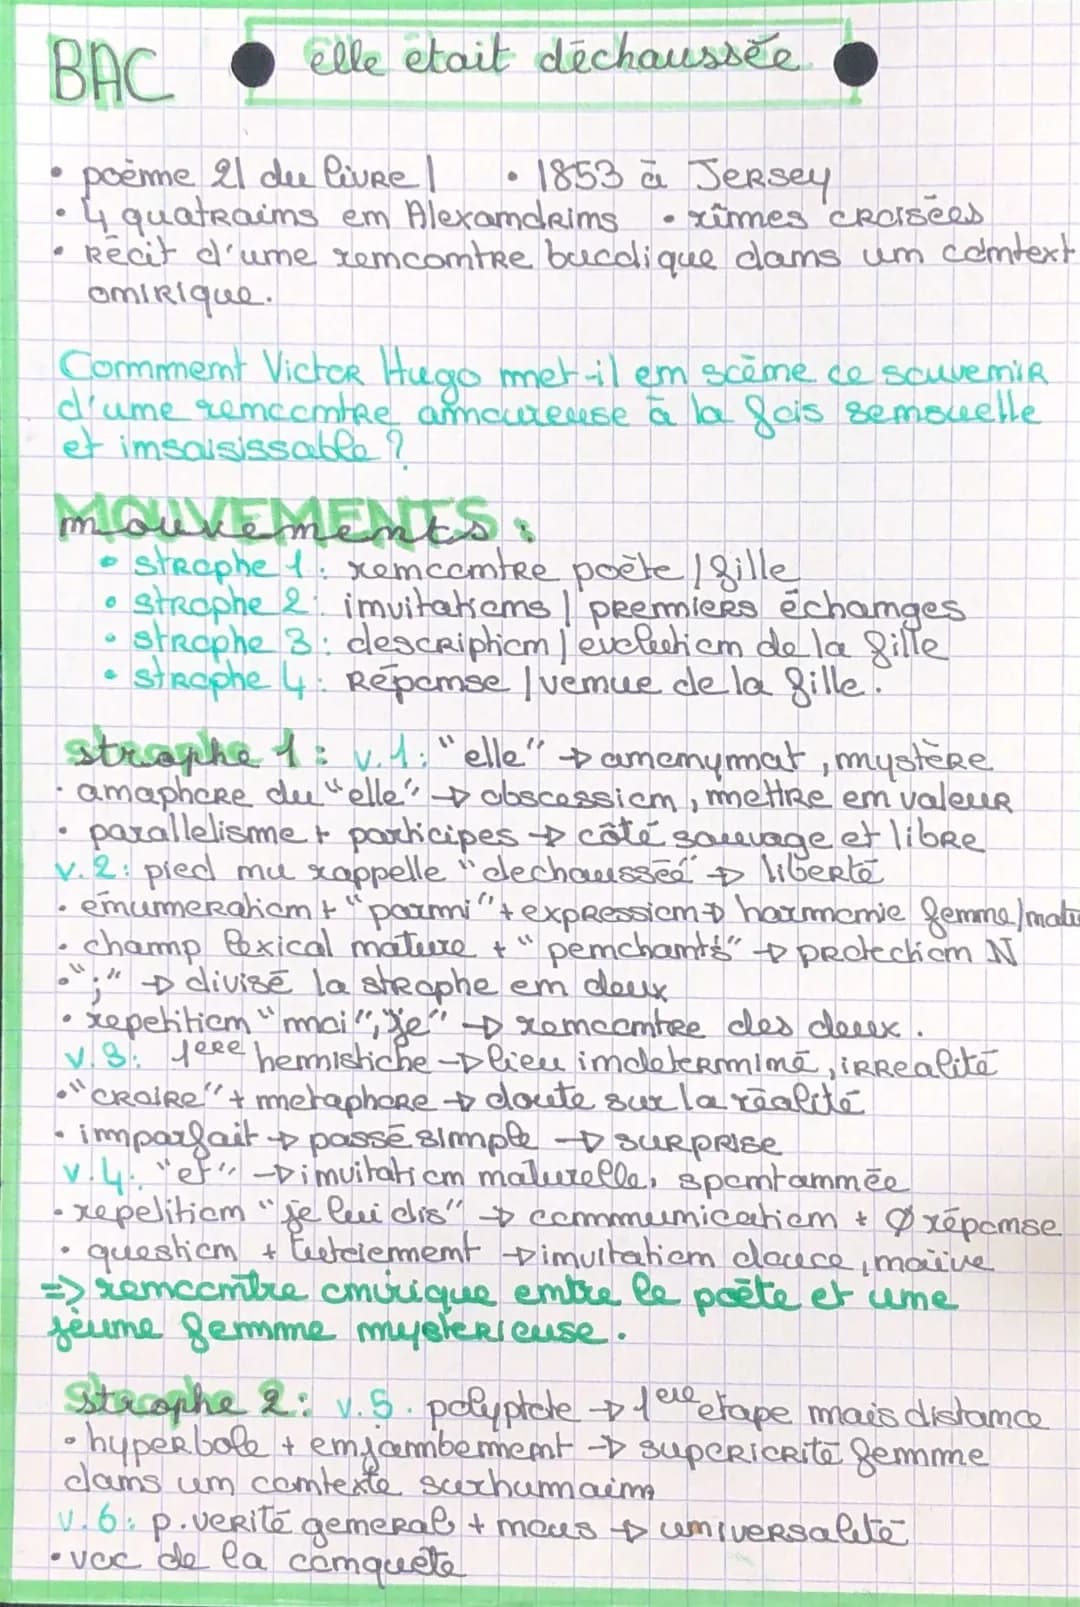 BAC
elle était déchaussée
• poème 21 du livre I • 1853 à Jersey
• 4 quatrains en Alexandrins • rimes croisées
• Récit d'une rencontre bucolique dans un context
onirique.
Comment Victor Hugo met-il en scène ce souvenir
d'une rencontre amoureuse à la fois sensuelle
et insaisissable ?
MOUVEMENTS
mouvements :
• strophe 1 : rencontre poète / fille
• strophe 2 : invitations / premiers échanges
• strophe 3 : description / evolution de la fille
• strophe 4 : Réponse / venue de la fille.
strophe 1 : v.1 : "elle" → anonymat, mystère
• anaphore du "elle" → obscession, mettre en valeur
• parallelisme + participes → côté sauvage et libre
v.2 : pied nu rappelle "dechaussée" → liberté
• énumeration + "parmi" + expression → harmonie femme/natu
• champ lexical nature + "penchants" → protection N
• ";" → divisé la strophe en deux
• repetition "moi", "je" → rencontre des deux.
v.3 : 1ere hemistiche → lieu indeterminé, irrealité
• "croire" + metaphore → doute sur la réalité
• imparfait → passé simple → surprise
v.4 : "et" → invitation naturelle, spontannée
• repetition "je lui dis" → communication + Ø réponse
• question + tutoiement → invitation douce, naïve
=> rencontre onirique entre le poète et une
jeune femme mysterieuse.
Strophe 2 : v.5. polyptote → 1ere étape mais distance
• hyperbole + enjambement → superiorité femme
dans un contexte surhumain
v.6 : p.verité general + nous → universalité
• voc de la conquête